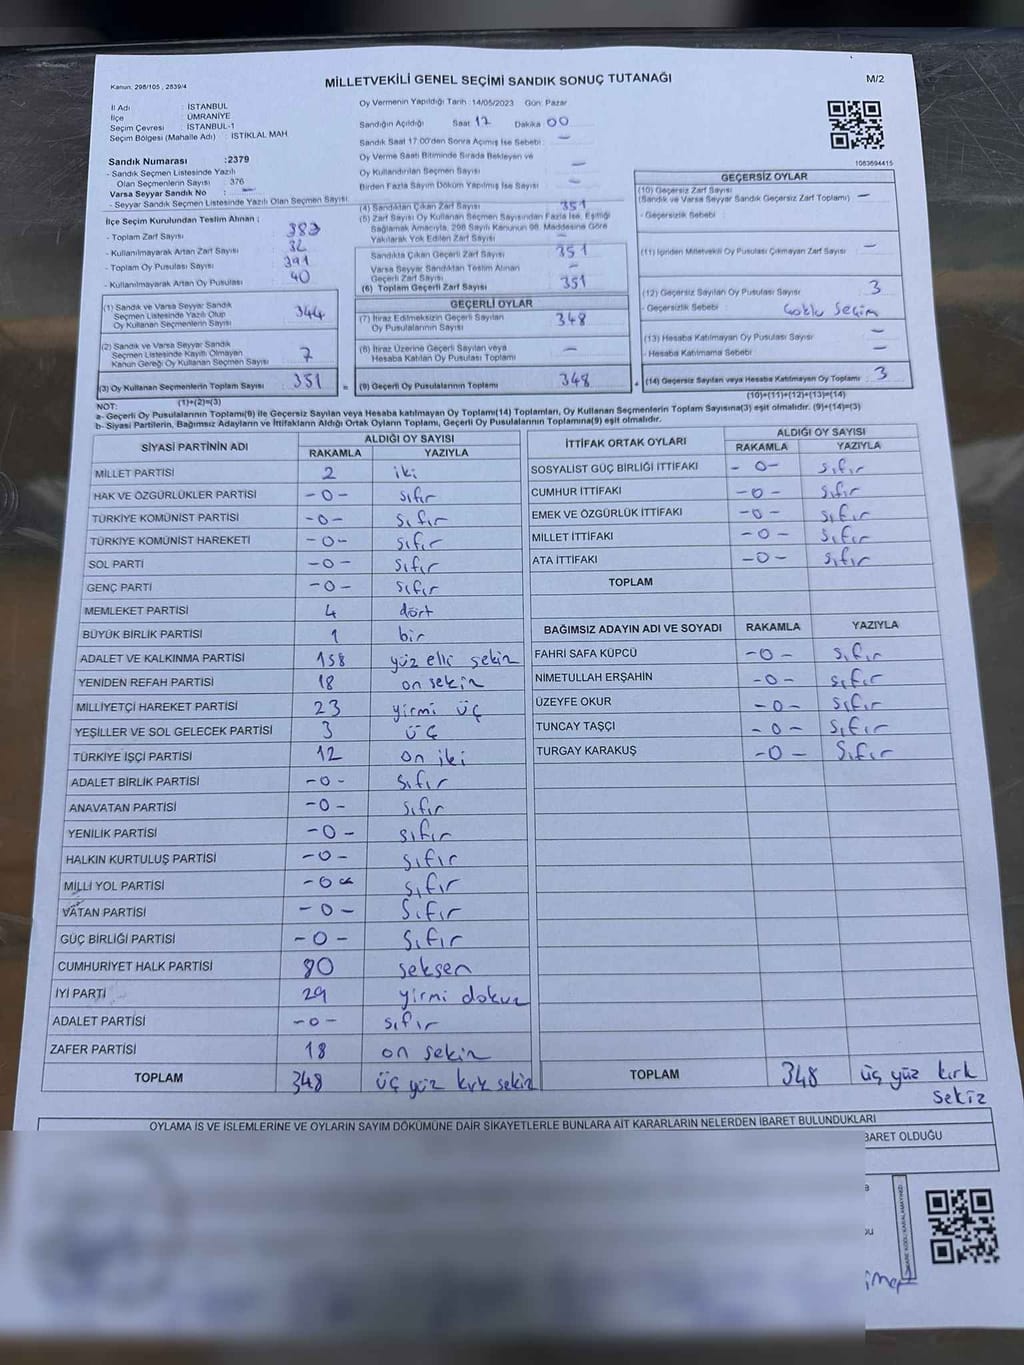 Kanun: 298/105 , 2839/4
MİLLETVEKİLİ GENEL SEÇİMİ SANDIK SONUÇ TUTANAĞI
M/2
İl Adı : İSTANBUL
İlçe : ÜMRANİYE
Seçim Çevresi : İSTANBUL-1
Seçim Bölgesi (Mahalle Adı) : İSTİKLAL MAH
Sandık Numarası :2379
- Sandık Seçmen Listesinde Yazılı
Olan Seçmenlerin Sayısı : 376
Varsa Seyyar Sandık No : —
- Seyyar Sandık Seçmen Listesinde Yazılı Olan Seçmen Sayısı
İlçe Seçim Kurulundan Teslim Alınan ;
- Toplam Zarf Sayısı 383
- Kullanılmayarak Artan Zarf Sayısı 32
- Toplam Oy Pusulası Sayısı 391
- Kullanılmayarak Artan Oy Pusulası 40
(1) Sandık ve Varsa Seyyar Sandık
Seçmen Listesinde Yazılı Olup
Oy Kullanan Seçmenlerin Sayısı 344
(2) Sandık ve Varsa Seyyar Sandık
Seçmen Listesinde Kayıtlı Olmayan
Kanun Gereği Oy Kullanan Seçmen Sayısı 7
(3) Oy Kullanan Seçmenlerin Toplam Sayısı 351 =
(1)+(2)=(3)
Oy Vermenin Yapıldığı Tarih : 14/05/2023 Gün: Pazar
Sandığın Açıldığı Saat 17 Dakika 00
Sandık Saat 17:00'den Sonra Açılmış İse Sebebi : —
Oy Verme Saati Bitiminde Sırada Bekleyen ve
Oy Kullandırılan Seçmen Sayısı —
Birden Fazla Sayım Döküm Yapılmış İse Sayısı —
(4) Sandıktan Çıkan Zarf Sayısı 351
(5) Zarf Sayısı Oy Kullanan Seçmen Sayısından Fazla İse, Eşitliği
Sağlamak Amacıyla, 298 Sayılı Kanunun 98. Maddesine Göre
Yakılarak Yok Edilen Zarf Sayısı —
Sandıkta Çıkan Geçerli Zarf Sayısı 351
Varsa Seyyar Sandıktan Teslim Alınan
Geçerli Zarf Sayısı —
(6) Toplam Geçerli Zarf Sayısı 351
GEÇERLİ OYLAR
(7) İtiraz Edilmeksizin Geçerli Sayılan
Oy Pusulalarının Sayısı 348
(8) İtiraz Üzerine Geçerli Sayılan veya
Hesaba Katılan Oy Pusulası Toplamı —
(9) Geçerli Oy Pusulalarının Toplamı 348 +
1083694415
GEÇERSİZ OYLAR
(10) Geçersiz Zarf Sayısı
(Sandık ve Varsa Seyyar Sandık Geçersiz Zarf Toplamı) —
- Geçersizlik Sebebi :
(11) İçinden Milletvekili Oy Pusulası Çıkmayan Zarf Sayısı —
(12) Geçersiz Sayılan Oy Pusulası Sayısı 3
- Geçersizlik Sebebi : Çoklu Seçim
(13) Hesaba Katılmayan Oy Pusulası Sayısı —
- Hesaba Katılmama Sebebi : —
(14) Geçersiz Sayılan veya Hesaba Katılmayan Oy Toplamı : 3
(10)+(11)+(12)+(13)=(14)
NOT:
a- Geçerli Oy Pusulalarının Toplamı(9) ile Geçersiz Sayılan veya Hesaba katılmayan Oy Toplamı(14) Toplamları, Oy Kullanan Seçmenlerin Toplam Sayısına(3) eşit olmalıdır. (9)+(14)=(3)
b- Siyasi Partilerin, Bağımsız Adayların ve İttifakların Aldığı Ortak Oyların Toplamı, Geçerli Oy Pusulalarının Toplamına(9) eşit olmalıdır.
SİYASİ PARTİNİN ADI
ALDIĞI OY SAYISI
RAKAMLA YAZIYLA
MİLLET PARTİSİ 2 iki
HAK VE ÖZGÜRLÜKLER PARTİSİ -0- sıfır
TÜRKİYE KOMÜNİST PARTİSİ -0- sıfır
TÜRKİYE KOMÜNİST HAREKETİ -0- sıfır
SOL PARTİ -0- sıfır
GENÇ PARTİ -0- sıfır
MEMLEKET PARTİSİ 4 dört
BÜYÜK BİRLİK PARTİSİ 1 bir
ADALET VE KALKINMA PARTİSİ 158 yüz elli sekiz
YENİDEN REFAH PARTİSİ 18 on sekiz
MİLLİYETÇİ HAREKET PARTİSİ 23 yirmi üç
YEŞİLLER VE SOL GELECEK PARTİSİ 3 üç
TÜRKİYE İŞÇİ PARTİSİ 12 on iki
ADALET BİRLİK PARTİSİ -0- sıfır
ANAVATAN PARTİSİ -0- sıfır
YENİLİK PARTİSİ -0- sıfır
HALKIN KURTULUŞ PARTİSİ -0- sıfır
MİLLİ YOL PARTİSİ -0- sıfır
VATAN PARTİSİ -0- sıfır
GÜÇ BİRLİĞİ PARTİSİ -0- sıfır
CUMHURİYET HALK PARTİSİ 80 seksen
İYİ PARTİ 29 yirmi dokuz
ADALET PARTİSİ -0- sıfır
ZAFER PARTİSİ 18 on sekiz
TOPLAM 348 üç yüz kırk sekiz
İTTİFAK ORTAK OYLARI
ALDIĞI OY SAYISI
RAKAMLA YAZIYLA
SOSYALİST GÜÇ BİRLİĞİ İTTİFAKI -0- sıfır
CUMHUR İTTİFAKI -0- sıfır
EMEK VE ÖZGÜRLÜK İTTİFAKI -0- sıfır
MİLLET İTTİFAKI -0- sıfır
ATA İTTİFAKI -0- sıfır
TOPLAM
BAĞIMSIZ ADAYIN ADI VE SOYADI RAKAMLA YAZIYLA
FAHRİ SAFA KÜPCÜ -0- sıfır
NİMETULLAH ERŞAHİN -0- sıfır
ÜZEYFE OKUR -0- sıfır
TUNCAY TAŞÇI -0- sıfır
TURGAY KARAKUŞ -0- sıfır
TOPLAM 348 üç yüz kırk
sekiz
OYLAMA İŞ VE İŞLEMLERİNE VE OYLARIN SAYIM DÖKÜMÜNE DAİR ŞİKAYETLERLE BUNLARA AİT KARARLARIN NELERDEN İBARET BULUNDUKLARI
BARET OLDUĞU